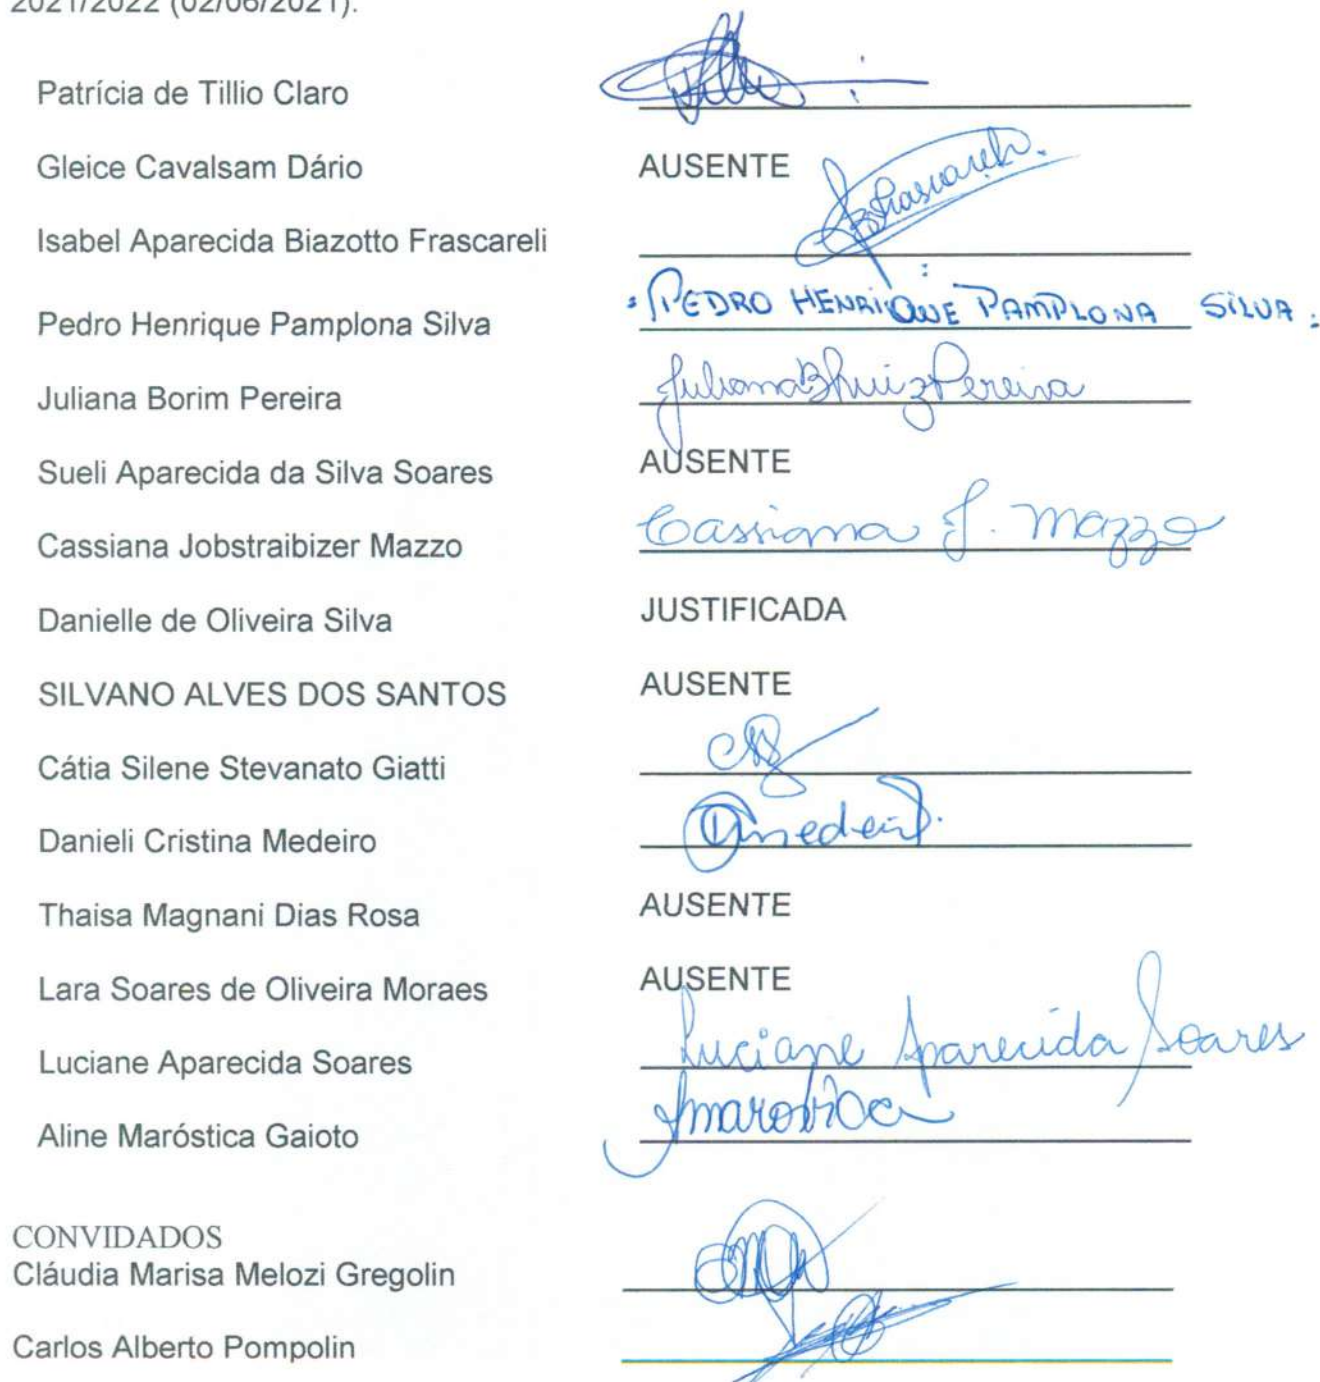 2021/2022 (02/06/2021).
Patrícia de Tillio Claro
Gleice Cavalsam Dário AUSENTE
Isabel Aparecida Biazotto Frascareli
Pedro Henrique Pamplona Silva PEDRO HENRIQUE PAMPLONA SILVA
Juliana Borim Pereira Juliana B Ruiz Pereira
Sueli Aparecida da Silva Soares AUSENTE
Cassiana Jobstraibizer Mazzo Cassiana J. Mazzo
Danielle de Oliveira Silva JUSTIFICADA
SILVANO ALVES DOS SANTOS AUSENTE
Cátia Silene Stevanato Giatti
Danieli Cristina Medeiro
Thaisa Magnani Dias Rosa AUSENTE
Lara Soares de Oliveira Moraes AUSENTE
Luciane Aparecida Soares Luciane Aparecida Soares
Aline Maróstica Gaioto
CONVIDADOS
Cláudia Marisa Melozi Gregolin
Carlos Alberto Pompolin